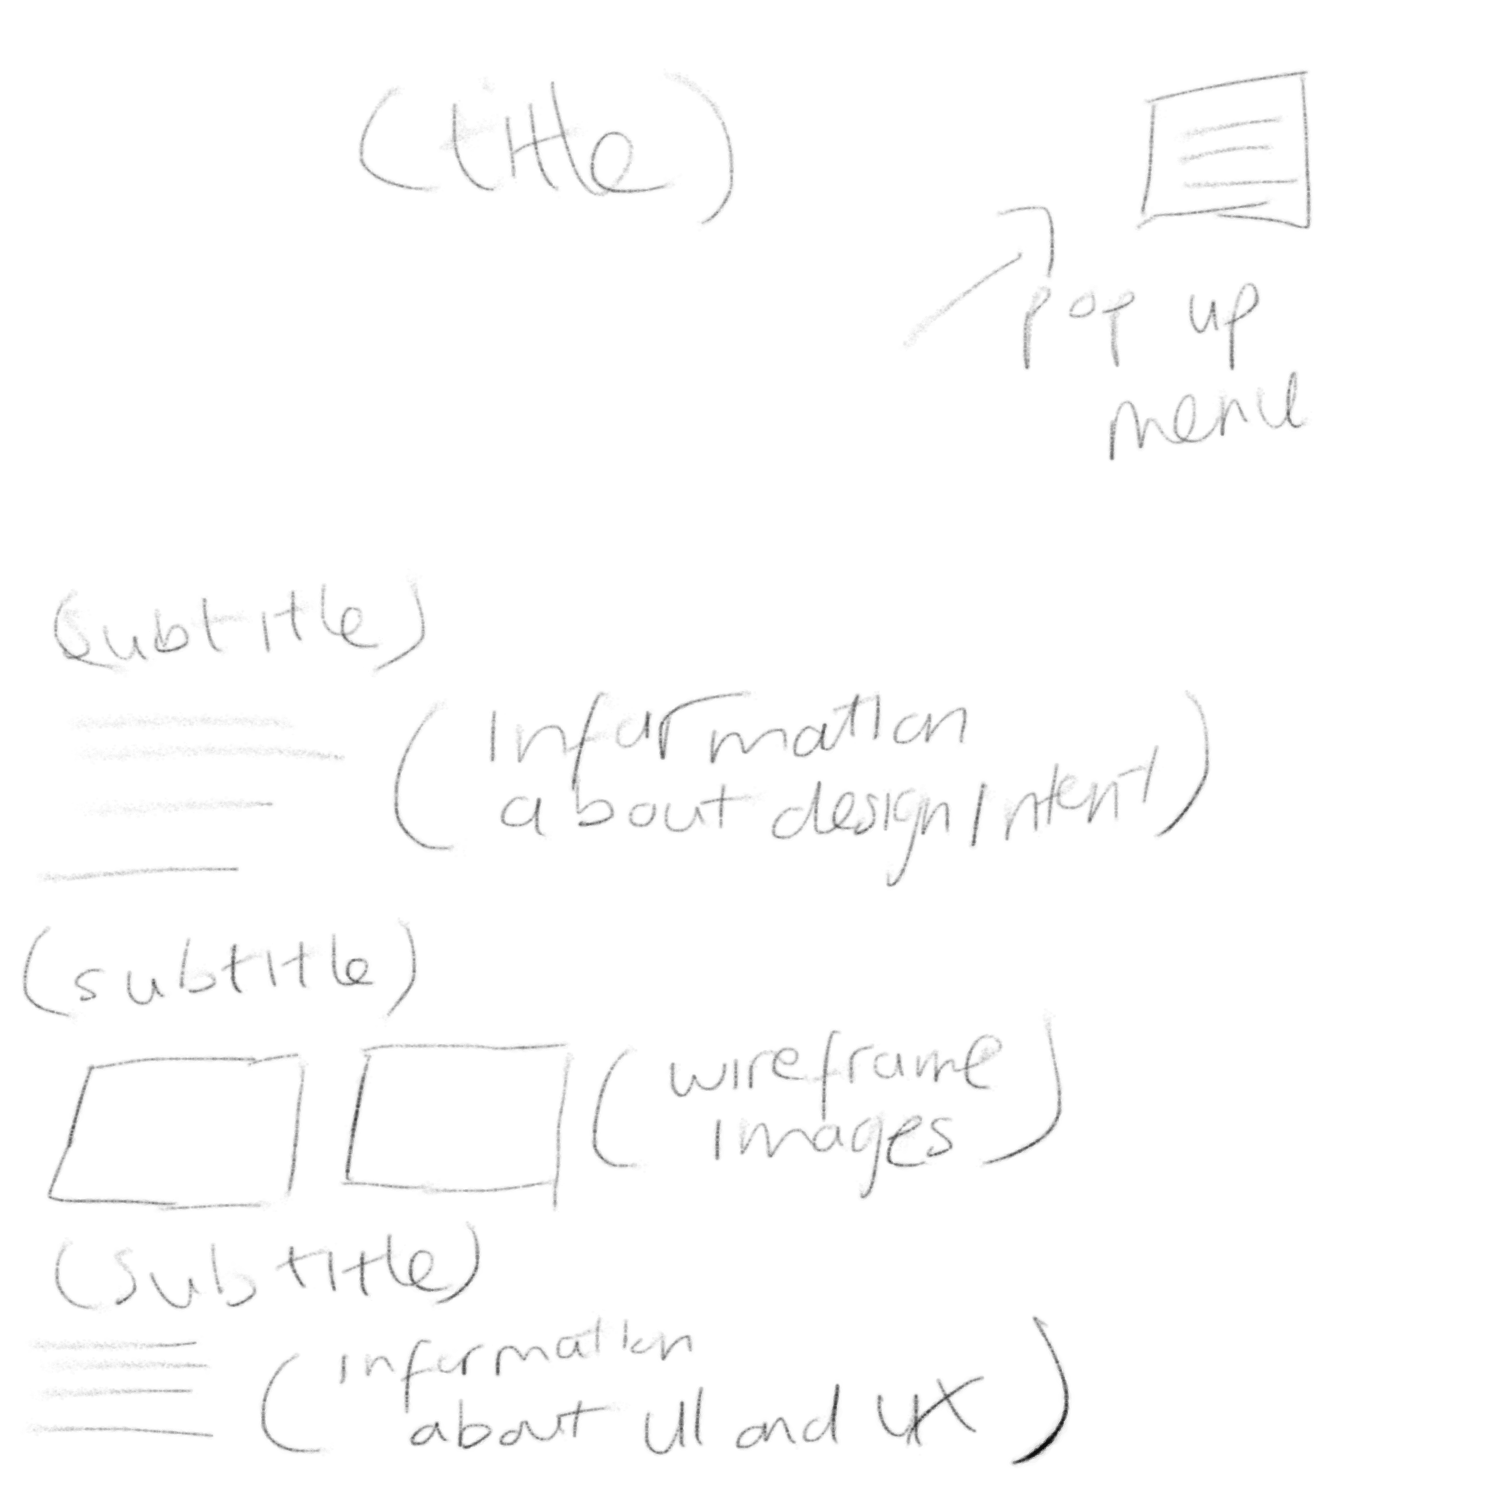 (title)
pop up
menu
(subtitle)
(information
about design intent)
(subtitle)
(wireframe
images)
(subtitle)
(information
about UI and UX)